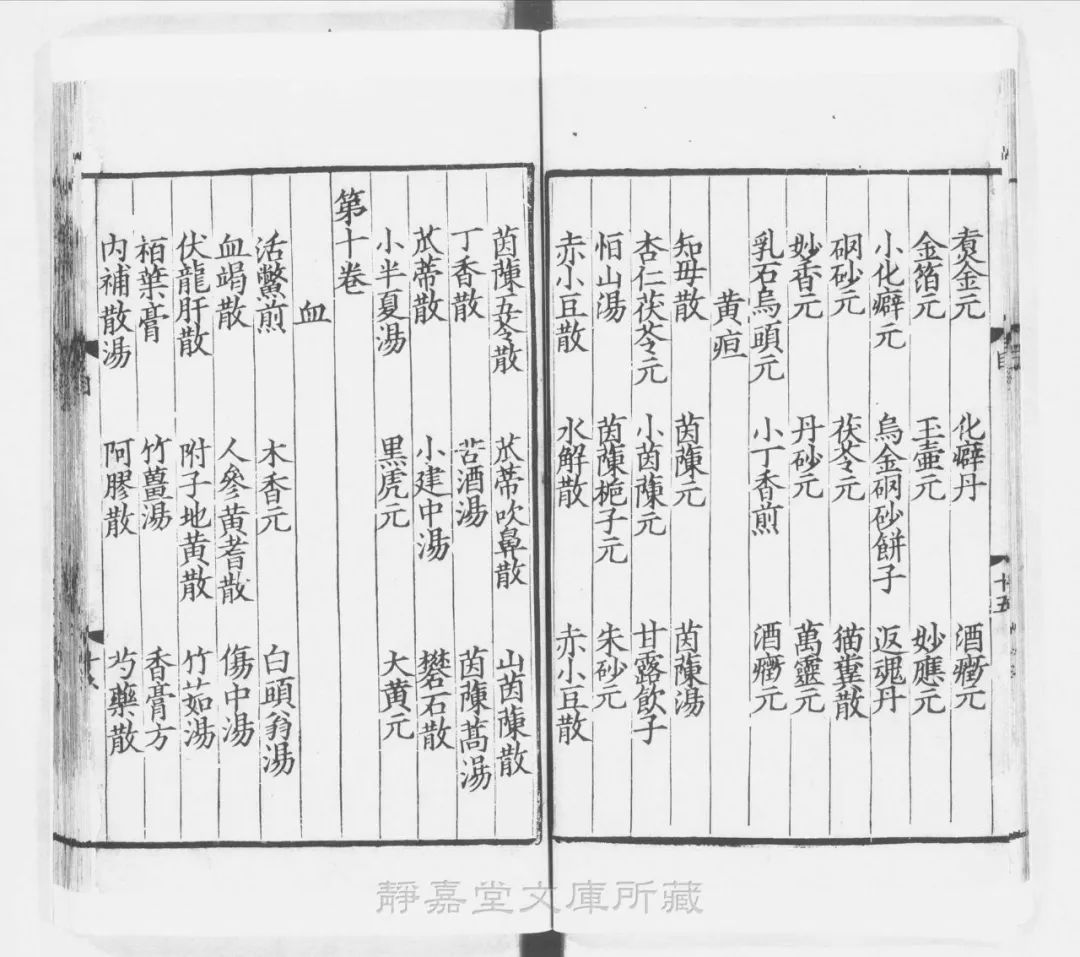 煑金元 化癖丹 酒癥元
金箔元 玉壷元 妙應元
小化癖元 烏金硇砂餅子 返魂丹
硇砂元 茯苓元 猫糞散
妙香元 丹砂元 萬靈元
乳石烏頭元 小丁香煎 酒癥元
黄疸
知母散 茵蔯元 茵蔯湯
杏仁茯苓元 小茵蔯元 甘露飲子
恒山湯 茵蔯梔子元 朱砂元
赤小豆散 水解散 赤小豆散
十五
茵蔯五苓散 苽蒂吹鼻散 山茵蔯散
丁香散 苦酒湯 茵蔯蒿湯
苽蒂散 小建中湯 礬石散
小半夏湯 黒虎元 大黄元
第十卷
血
活鱉煎 木香元 白頭翁湯
血竭散 人參黄耆散 傷中湯
伏龍肝散 附子地黄散 竹茹湯
栢葉膏 竹薑湯 香膏方
内補散湯 阿膠散 芍藥散
靜嘉堂文庫所藏